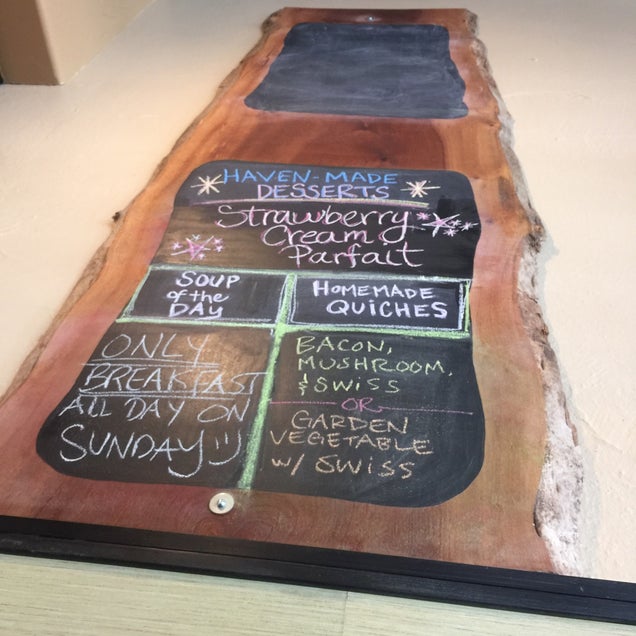 HAVEN-MADE
DESSERTS
Strawberry
Cream
Parfait
SOUP
of the
DAY
ONLY
BREAKFAST
ALL DAY ON
SUNDAY :)
HOMEMADE
QUICHES
BACON,
MUSHROOM,
& SWISS
OR
GARDEN
VEGETABLE
W/ SWISS